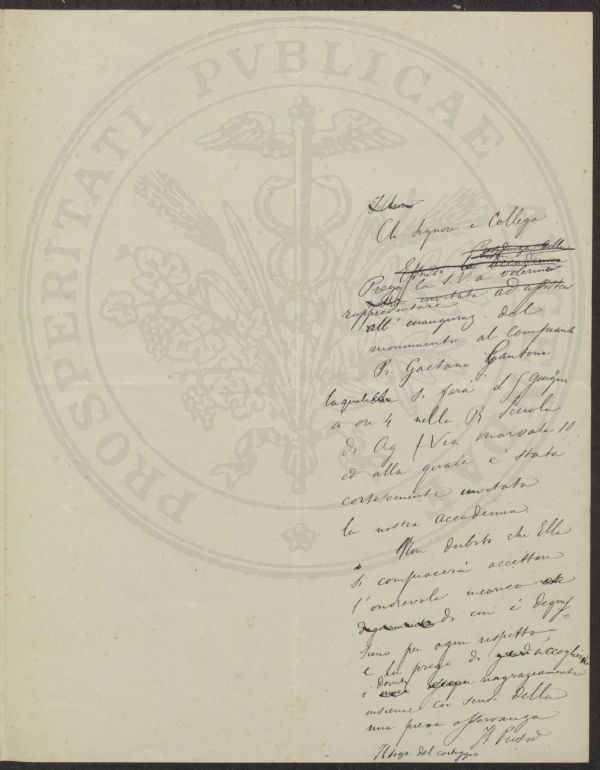 PROSPERITATI PVBLICAE
Ill
Ch Signore e Collega
Presidenza della
Essendo la Accademia
Prego la S.V. a volermi
invitata ad assistere
rappresentare
all' inauguraz. del
monumento al compianto
Pr. Gaetano Cantoni
la quale si farà il 5 Giugno
a ore 4 nella R Scuola
di Ag (Via Marsala 10.
ed alla quale è stata
cortesemente invitata
la nostra Accademia
Non dubito che Ella
si compiacerà accettare
l'onorevole incarico
di cui è degnis
simo per ogni rispetto,
e la prego di accogliere
i dovuti ringraziamenti
insieme coi sensi della
mia piena osservanza
Il Presid
Il segr. del carteggio